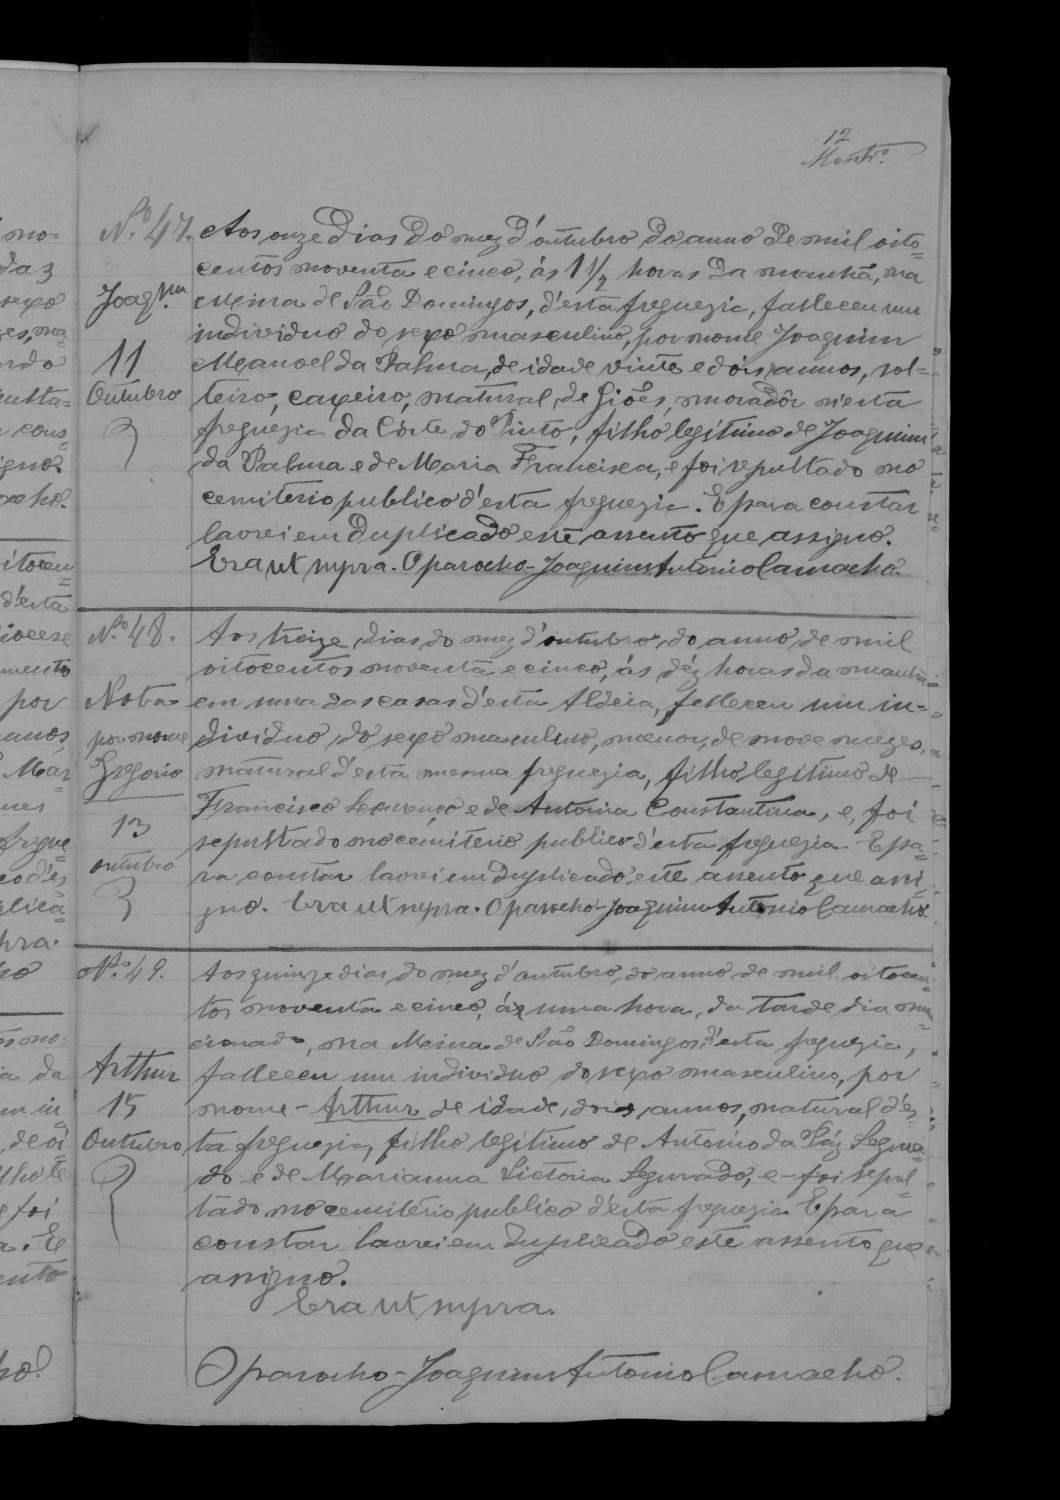 12
Montr.º
N.º 47.
Joaq.m
11
Outubro
Aos onze dias do mez d'outubro do anno de mil oito=
centos noventa e cinco, ás 1 1/2 horas da manhã, na
Meina de São Domingos, d'esta freguezia, falleceu um
individuo do sexo masculino, por nome Joaquim
Manoel da Palma, de idade vinte e dois annos, sol=
teiro, caxeiro, natural de Giões, moradôr n'esta
freguezia da Côrte do Pinto, filho legitimo de Joaquim
da Palma e de Maria Francisca, e foi sepultado no
cemiterio publico d'esta freguezia. E para constar
lavrei em duplicado este assento que assigno.
Era ut supra. O parocho - Joaquim Antonio Camacho.
N.º 48.
Nota
por nome
Gregorio
13
outubro
Aos treize dias do mez d'outubro, do anno de mil
oitocentos noventa e cinco, ás déz horas da manhã
em uma das casas d'esta Aldeia, falleceu um in=
dividuo do sexo masculino, menor, de nove mezes,
natural d'esta mesma freguezia, filho legitimo de
Francisco Lourenço e de Antonia Constantina, e, foi
sepultado no cemiterio publico d'esta freguezia. E pa=
ra constar lavrei em duplicado este assento que assi=
gno. Era ut supra. O parocho - Joaquim Antonio Camacho
N.º 49.
Arthur
15
Outubro
Aos quinze dias do mez d'outubro, do anno de mil oitocen=
tos noventa e cinco, ás uma hora, da tarde dia men=
cionado, na Meina de São Domingos, d'esta freguezia,
falleceu um individuo do sexo masculino, por
nome - Arthur de idade, dois, annos, natural d'es=
ta freguezia, filho legitimo de Antonio da Páz Segura=
do e de Marianna Victoria Segurado, e - foi sepul=
tado no cemiterio publico d'esta freguezia E para
constar lavrei em duplicado este assento que
assigno.
Era ut supra.
O parocho - Joaquim Antonio Camacho.